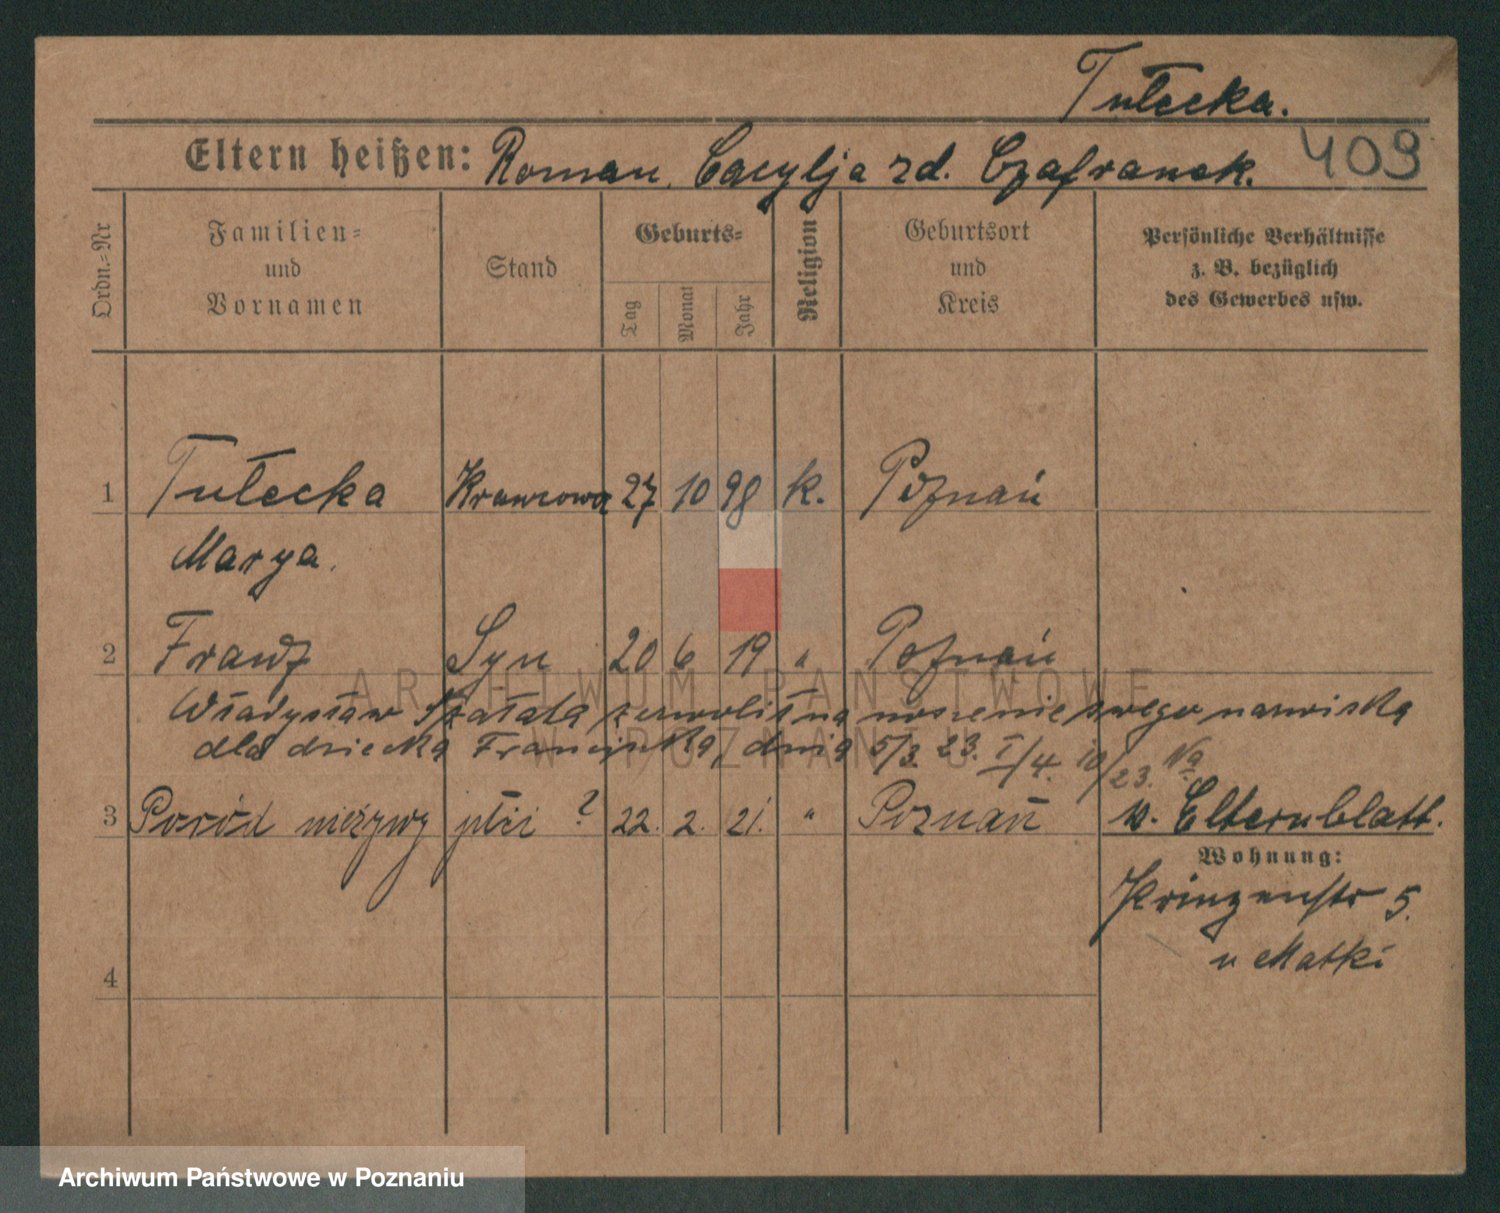 Tułecka.
409
Eltern heißen: Roman, Cacylja zd. Czafranek.
Ordn.-Nr
Familien-
und
Vornamen
Stand
Geburts-
Tag
Monat
Jahr
Religion
Geburtsort
und
Kreis
Persönliche Verhältnisse
z. B. bezüglich
des Gewerbes usw.
1 Tułecka Krawcowa 27 10 98 k. Poznań
Marya.
2 Franz Syn 20 6 19 " Poznań
Władysław Szatala zezwolił na noszenie swego nazwiska
dla dziecka Franciszka, dnia 5/3. 23. I/4. 10/23. Na
3 Poród nieżywy płci ? 22. 2. 21. " Poznań w. Elternblatt.
Wohnung:
Prinzenstr 5.
u Matki
4
ARCHIWUM PAŃSTWOWE
W POZNANIU
Archiwum Państwowe w Poznaniu